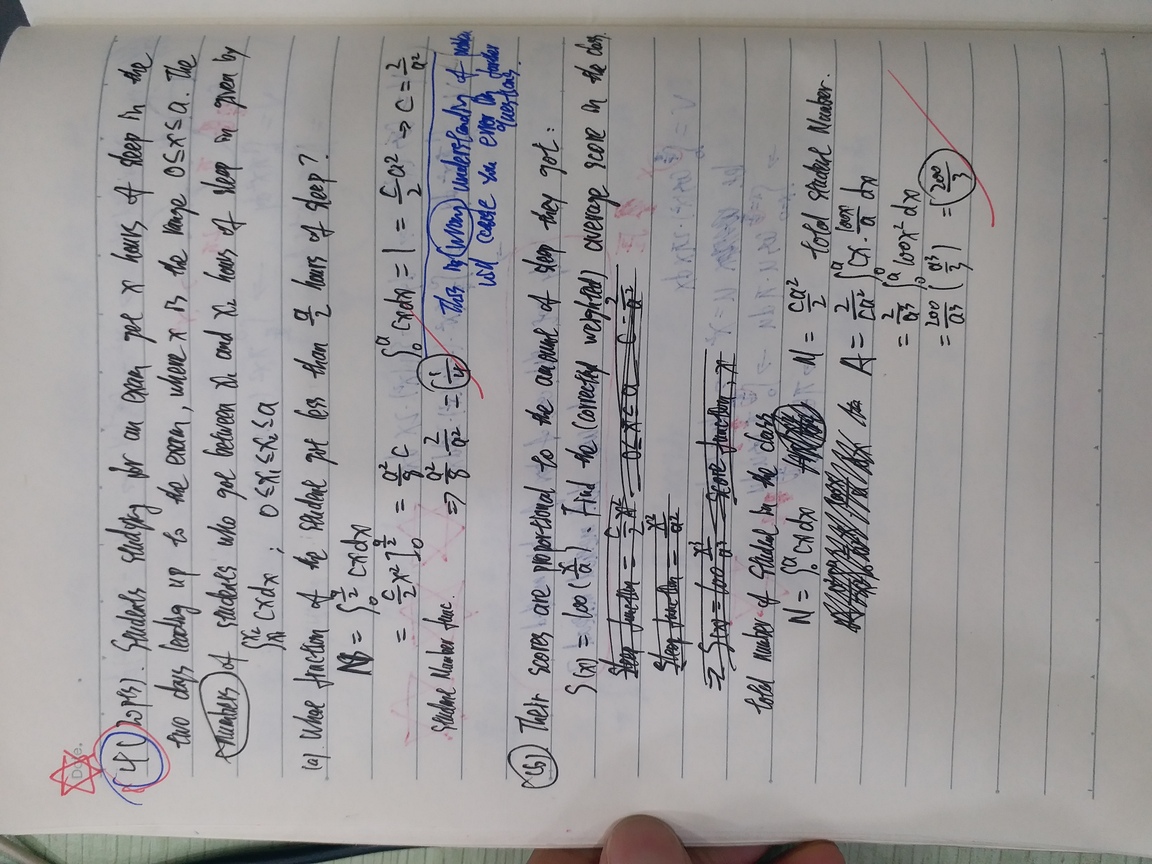 Date.
4 (20pts). Students studying for an exam get x hours of sleep in the
two days leading up to the exam, where x is the range 0≤x≤a. The
numbers of students who got between x₁ and x₂ hours of sleep in given by
∫_{x₁}^{x₂} cxdx ; 0≤x₁≤x₂≤a
(a). What fraction of the student get less than a/2 hours of sleep?
N = ∫_0^{a/2} cxdx
= c/2 x² ]_0^{a/2} = a²/8 c ∫_0^a cxdx = 1 = c/2 a² → c = 2/a²
Student Number func. => a²/8 · 2/a² = 1/4
This is wrong understanding of problem
will cause you error in further
questions.
(b). Their scores are proportional to the amount of sleep they got:
S(x) = 100 (x/a). Find the (correctly weighted) average score in the class.
Sleep function = c/2 x² 0≤x≤a c = 2/a²
Sleep function = x²/a²
=> S(x) = 100 x³/a³ score function, x
total number of student in the class
N = ∫_0^a cxdx N = ca²/2 total student Number.
A = 2/ca² ∫_0^a cx · 100x/a dx
= 2/a³ ∫_0^a 100x² dx
= 200/a³ (a³/3) = 200/3